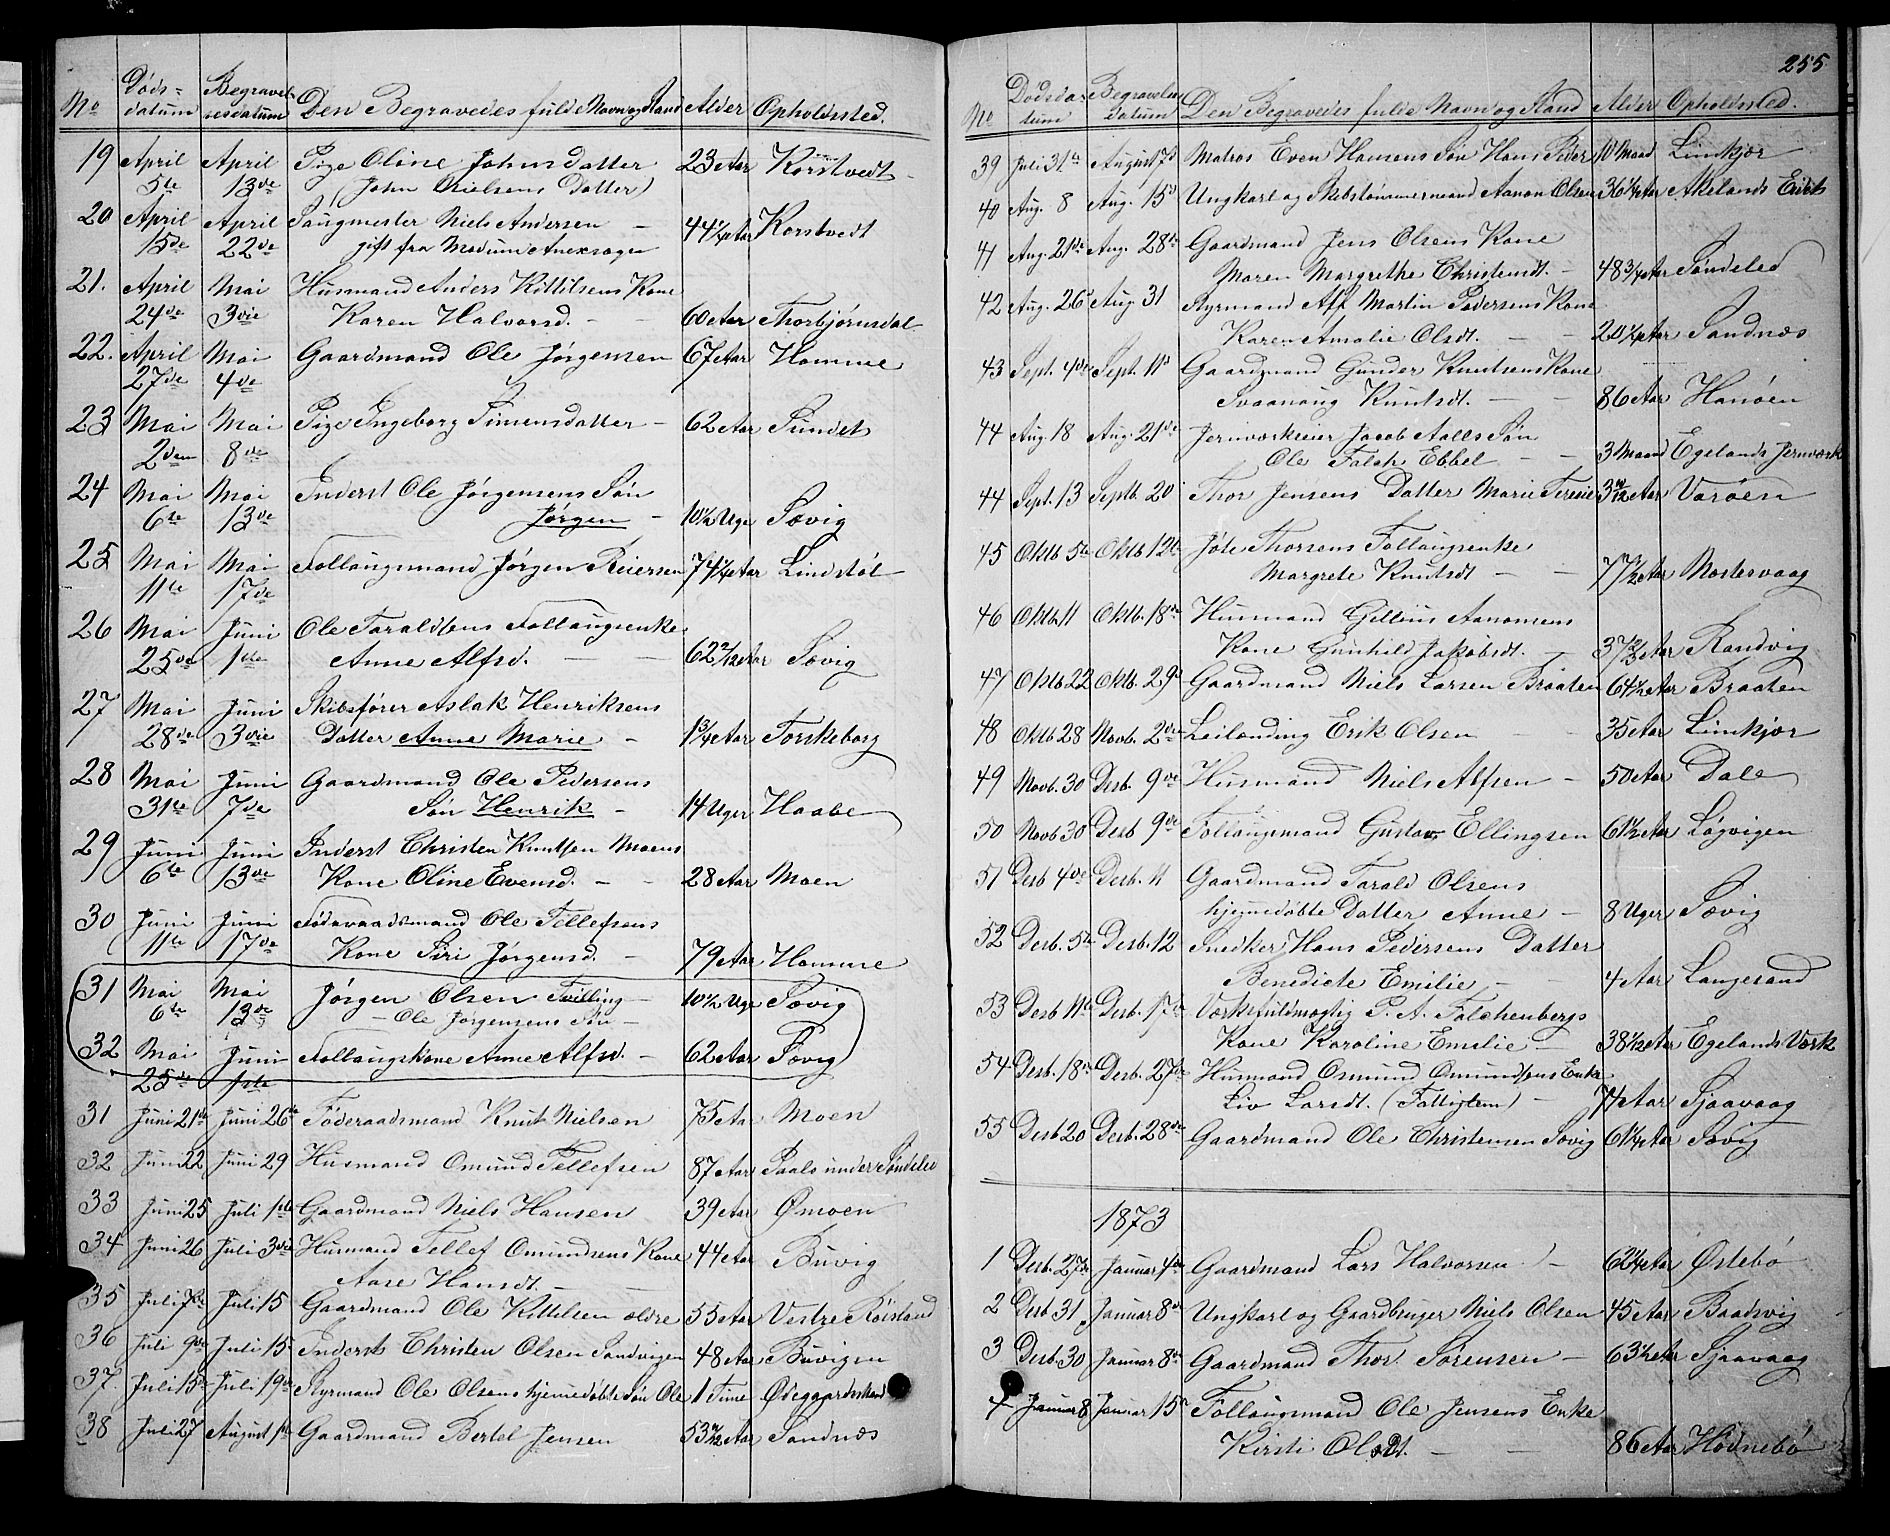 No Døds- Begravel- Den Begravedes fulde Navn og Stand Alder Opholdssted.
datum sesdatum
19 April April Pige Oline Johnsdatter 23 Aar Korstvedt
5te 13de (John Nielsens Datter)
20 April April Saugmester Niels Andersen 44 1/4 Aar Korstvedt
15de 22de gift fra Modum Anexsogn
21. April Mai Husmand Anders Kittilsens Kone
24de 3die Karen Halvorsd. 60 Aar Thorbjørnsdal
22. April Mai Gaardmand Ole Jørgensen 67 Aar Homme
27de 4de
23 Mai Mai Pige Ingeborg Simensdatter 62 Aar Sundet
2den 8de
24 Mai Mai Inderst Ole Jørgensens Søn
6te 13de Jørgen 10 1/2 Uge Søvig
25 Mai Mai Follaugsmand Jørgen Reiersen 74 1/4 Aar Lindstøl
11te 17de
26 Mai Juni Ole Taraldsens Follaugsenke
25de 1ste Anne Alfsd. 62 2/12 Aar Søvig
27 Mai Juni Skibsfører Aslak Henriksens
28de 3die Datter Anne Marie 1 3/4 Aar Torskeborg
28 Mai Juni Gaardmand Ole Pedersens
31te 7de Søn Henrik 14 Uger Haabe
29 Juni Juni Inderst Christen Knutsen Moens
6te 13de Kone Oline Evensd. 28 Aar Moen
30 Juni Juni Føderaadsmand Ole Tellefsens
11te 17de Kone Siri Jørgensd. 79 Aar Homme
31 Mai Mai Jørgen Olsen Tvilling 10 1/2 Uge Søvig
6te 13de Ole Jørgensens Søn
32 Mai Juni Follaugskone Anne Alfsd. 62 Aar Søvig
25de 1ste
31 Juni 21de Juni 26de Føderaadsmand Knut Nielsen 75 Aar Moen
32 Juni 22 Juni 29 Husmand Omund Tellefsen 87 Aar Paals under Søndeled
33 Juni 25 Juli 1ste Gaardmand Niels Hansen 39 Aar Ømoen
34 Juni 26 Juli 3die Husmand Tellef Omundsens Kone 44 Aar Buvig
Aase Hansdt.
35 Juli 7de Juli 15 Gaardmand Ole Kittilsen ældre 55 Aar Vestre Røisland
36 Juli 9de Juli 15 Inderst Christen Olsen Sandvigen 48 Aar Buvigen
37. Juli 15de Juli 19de Styrmand Ole Olsens hjemmedøbte Søn Ole 1 Time Ødeggardsstrand
38 Juli 27 August 1ste Gaardmand Bertel Jensen 53 Aar Sandnæs
255
No Dødsda- Begravelses Den Begravedes fulde Navn og Stand Alder Opholdssted.
tum datum
39 Juli 31te August 7de Matros Even Hansens Søn Hans Peder 10 Maad Limkjær
40 Aug. 8 Aug. 15de Ungkarl og Skibstømmermand Aanon Olsen 36 1/4 Aar Akelands Eidet
41 Aug. 21de Aug. 28de Gaardmand Jens Olsens Kone
Maren Margrethe Christensdt. 48 3/4 Aar Søndeled
42 Aug. 26 Aug 31 Styrmand Alf Martin Pedersens Kone
Karen Amalie Olsdt. 20 1/4 Aar Sandnæs
43 Sept. 4de Sept. 11te Gaardmand Gunder Knutsens Kone
Svaanaug Knutsdt. 86 Aar Hanøen
44 Aug. 18 Aug. 21de Jernværkseier Jacob Aalls Søn
Ole Falch Ebbel 3 Maaned Egelands Jernværk
44 Sept. 13 Septb. 20 Thor Jensens Datter Marie Teresie 3 Aar Varøen
45 Oktb. 5te Oktb. 12te Thorsens Follaugsenke
Margrete Knutsdt 77 1/2 Aar Mostervaag
46 Oktb. 11 Oktb. 18de Husmand Aanonsens
Kone Gunhild Jakobsdt. 37 2/3 Aar Randvig
47 Oktb 22 Oktb. 29de Gaardmand Niels Larsen Braaten 64 1/2 Aar Braaten
48 Oktb 28 Novb. 2den Leilending Erik Olsen 35 Aar Limkjær
49 Novb. 30 Desb. 9de Husmand Niels Alfsen 50 Aar Dale
50 Novb 30 Desb 9de Follaugsmand Gustav Ellingsen 61 1/2 Aar Løgvigen
51 Desb 4de Desb. 11 Gaardmand Tarald Olsens
hjemmedøbte Datter Anne 8 Uger Søvig
52 Desb. 5te Desb. 12 Snedker Hans Pedersens Datter
Benedicte Emilie 4 Aar Langesand
53 Desb 11te Desb. 17de Værksfuldmægtig P. A. Falchenbergs
Kone Karoline Emilie 38 1/2 Aar Egelands Værk
54 Desb. 18de Desb. 27de Husmand Osmund Osmundsens Enke
Liv Larsdt. (Fattiglem) 74 Aar Sjaavaag
55 Desb 20 Desb. 28de Gaardmand Ole Christensen Søvig 61 1/4 Aar Søvig
1873
1 Desb. 27de Januar 4de Gaardmand Lars Halvorsen 62 1/4 Aar Østebø
2 Desb 31 Januar 8de Ungkarl og Gaardbruger Niels Olsen 45 Aar Baadvig
3 Desb. 30 Januar 8de Gaardmand Thor Sørensen 63 1/2 Aar Sjaavaag
4 Januar 8 Januar 15de Follaugsmand Ole Jensens Enke
Kirsti Olsdt. 86 Aar Hødnebø